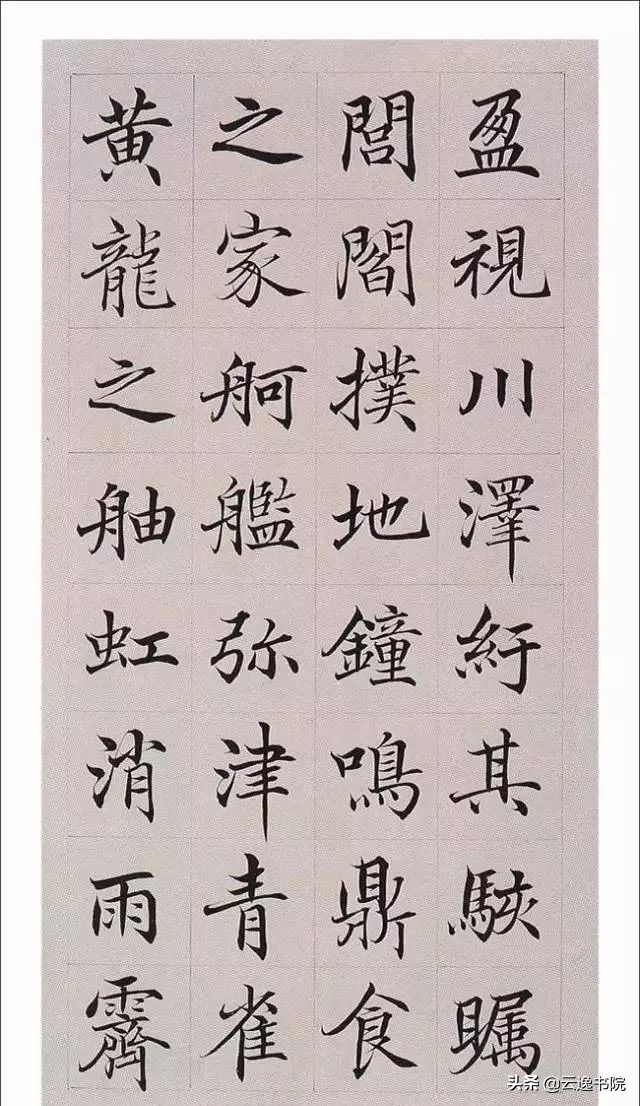 盈視川澤紆其駭矚
閭閻撲地鐘鳴鼎食
之家舸艦弥津青雀
黃龍之舳虹消雨霽
头条 @云逸书院